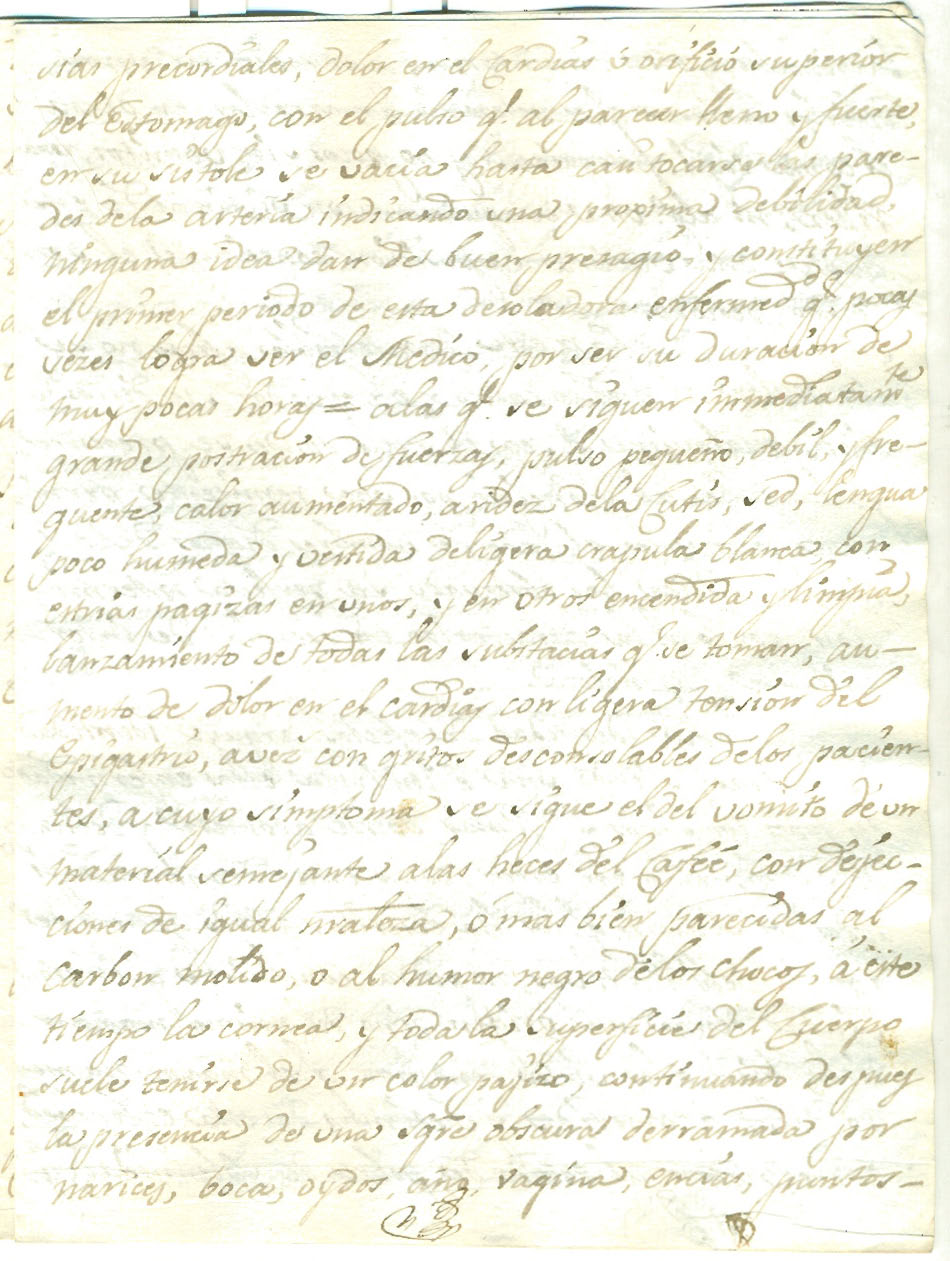 sias precordiales, dolor en el Cardias ú orificio superior
del Estomago, con el pulso q.e al parecer lleno y fuerte,
en su sistole se vacia hasta casi tocarse las pare-
des dela arteria indicando una proxima debilidad,
ninguna idea dan de buen presagio, y constituyen
el primer periodo de esta desoladora enfermed.d q.e pocas
vezes logra ver el Medico, por ser su duracion de
muy pocas horas = alas q.e se siguen immediatam.te
grande postracion de fuerzas, pulso pequeño, debil, y fre-
quente, calor aumentado, aridez dela Cutis, sed, lengua
poco humeda y vestida deligera crapula blanca, con
estrias pagizas en unos, y en otros encendida y limpia,
lanzamiento de todas las substacias q.e se toman, au-
mento de dolor en el cardias con ligera tension del
Epigastrio, a vez con gritos desconsolables delos pacien-
tes, a cuyo simptoma se sigue el del vomito de un
material semejante alas heces del Cafeé, con dejec-
ciones de igual nraleza, ó mas bien parecidas al
carbon molido, o al humor negro delos chocos, á este
tiempo la cornea, y toda la superficie del Cuerpo
suele teñirse de un color pajizo, continuando despues
la presencia de una sgre obscura derramada por
narices, boca, oydos, año, vagina, encias, puntos-